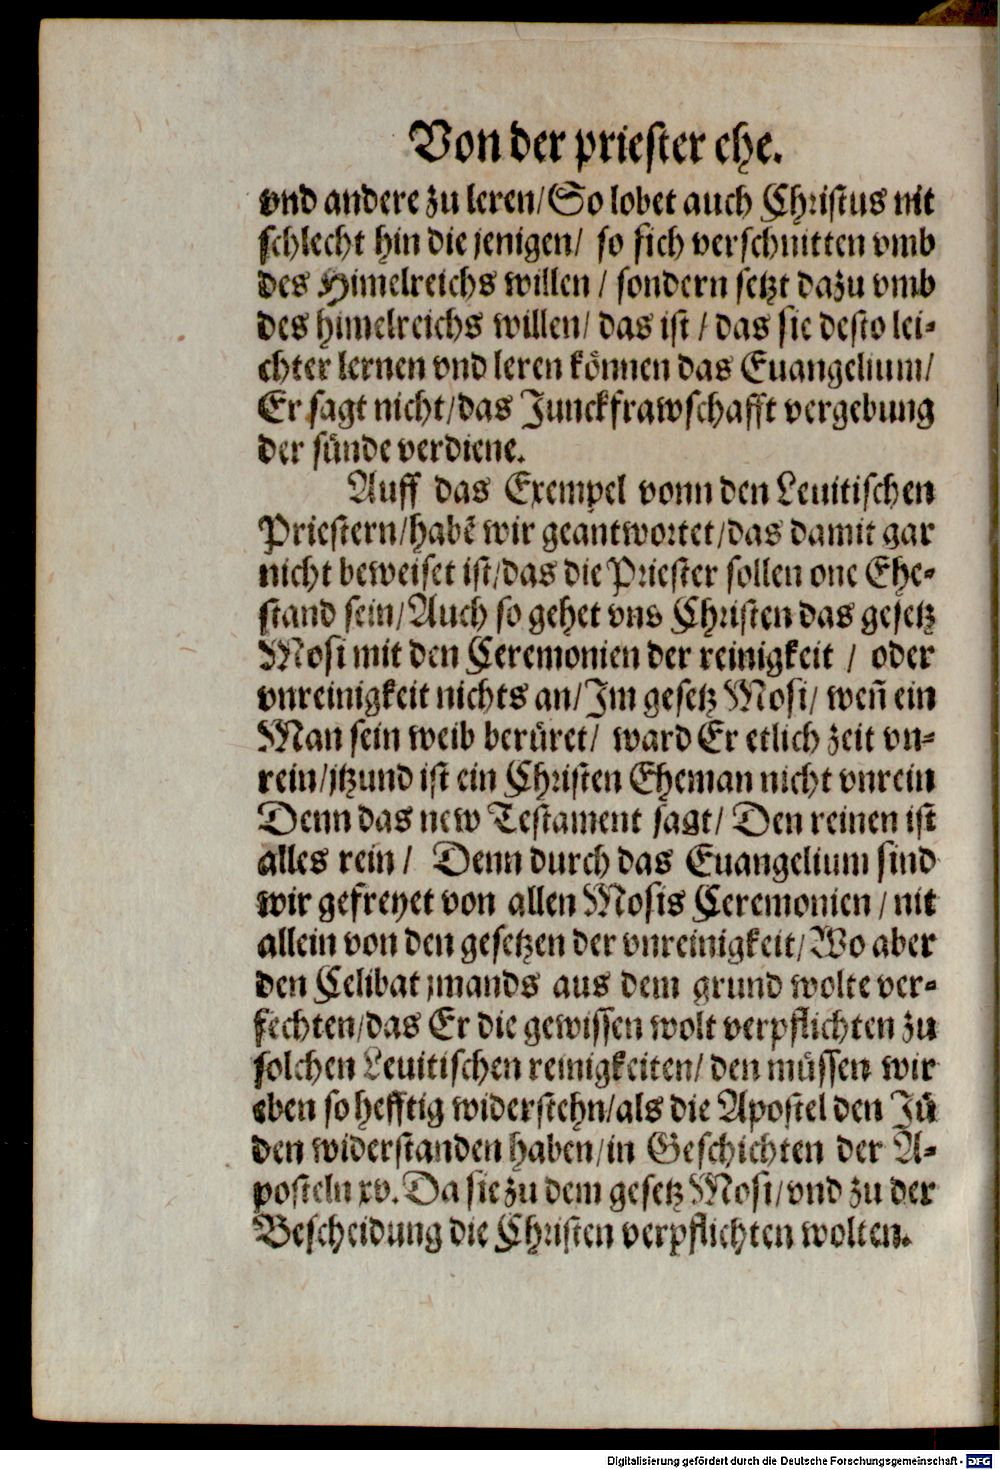 Von der priester ehe.
vnd andere zu leren/So lobet auch Christus nit
schlecht hin die jenigen/ so sich verschnitten vmb
des Himelreichs willen / sondern setzt dazu vmb
des himelreichs willen/ das ist / das sie desto lei-
chter lernen vnd leren können das Euangelium/
Er sagt nicht/das Junckfrawschafft vergebung
der sünde verdiene.
Auff das Exempel vonn den Leuitischen
Priestern/habē wir geantwortet/das damit gar
nicht beweiset ist/das die Priester sollen one Ehe-
stand sein/Auch so gehet vns Christen das gesetz
Mosi mit den Ceremonien der reinigkeit / oder
vnreinigkeit nichts an/Im gesetz Mosi/ weñ ein
Man sein weib berüret/ ward Er etlich zeit vn-
rein/jtzund ist ein Christen Eheman nicht vnrein
Denn das new Testament sagt/ Den reinen ist
alles rein / Denn durch das Euangelium sind
wir gefreyet von allen Mosis Ceremonien / nit
allein von den gesetzen der vnreinigkeit/Wo aber
den Celibat jmands aus dem grund wolte ver-
fechten/das Er die gewissen wolt verpflichten zu
solchen Leuitischen reinigkeiten/ den müssen wir
eben so hefftig widerstehn/als die Apostel den Jü
den widerstanden haben/in Geschichten der A-
posteln xv. Da sie zu dem gesetz Mosi/vnd zu der
Bescheidung die Christen verpflichten wolten.
Digitalisierung gefördert durch die Deutsche Forschungsgemeinschaft - DFG